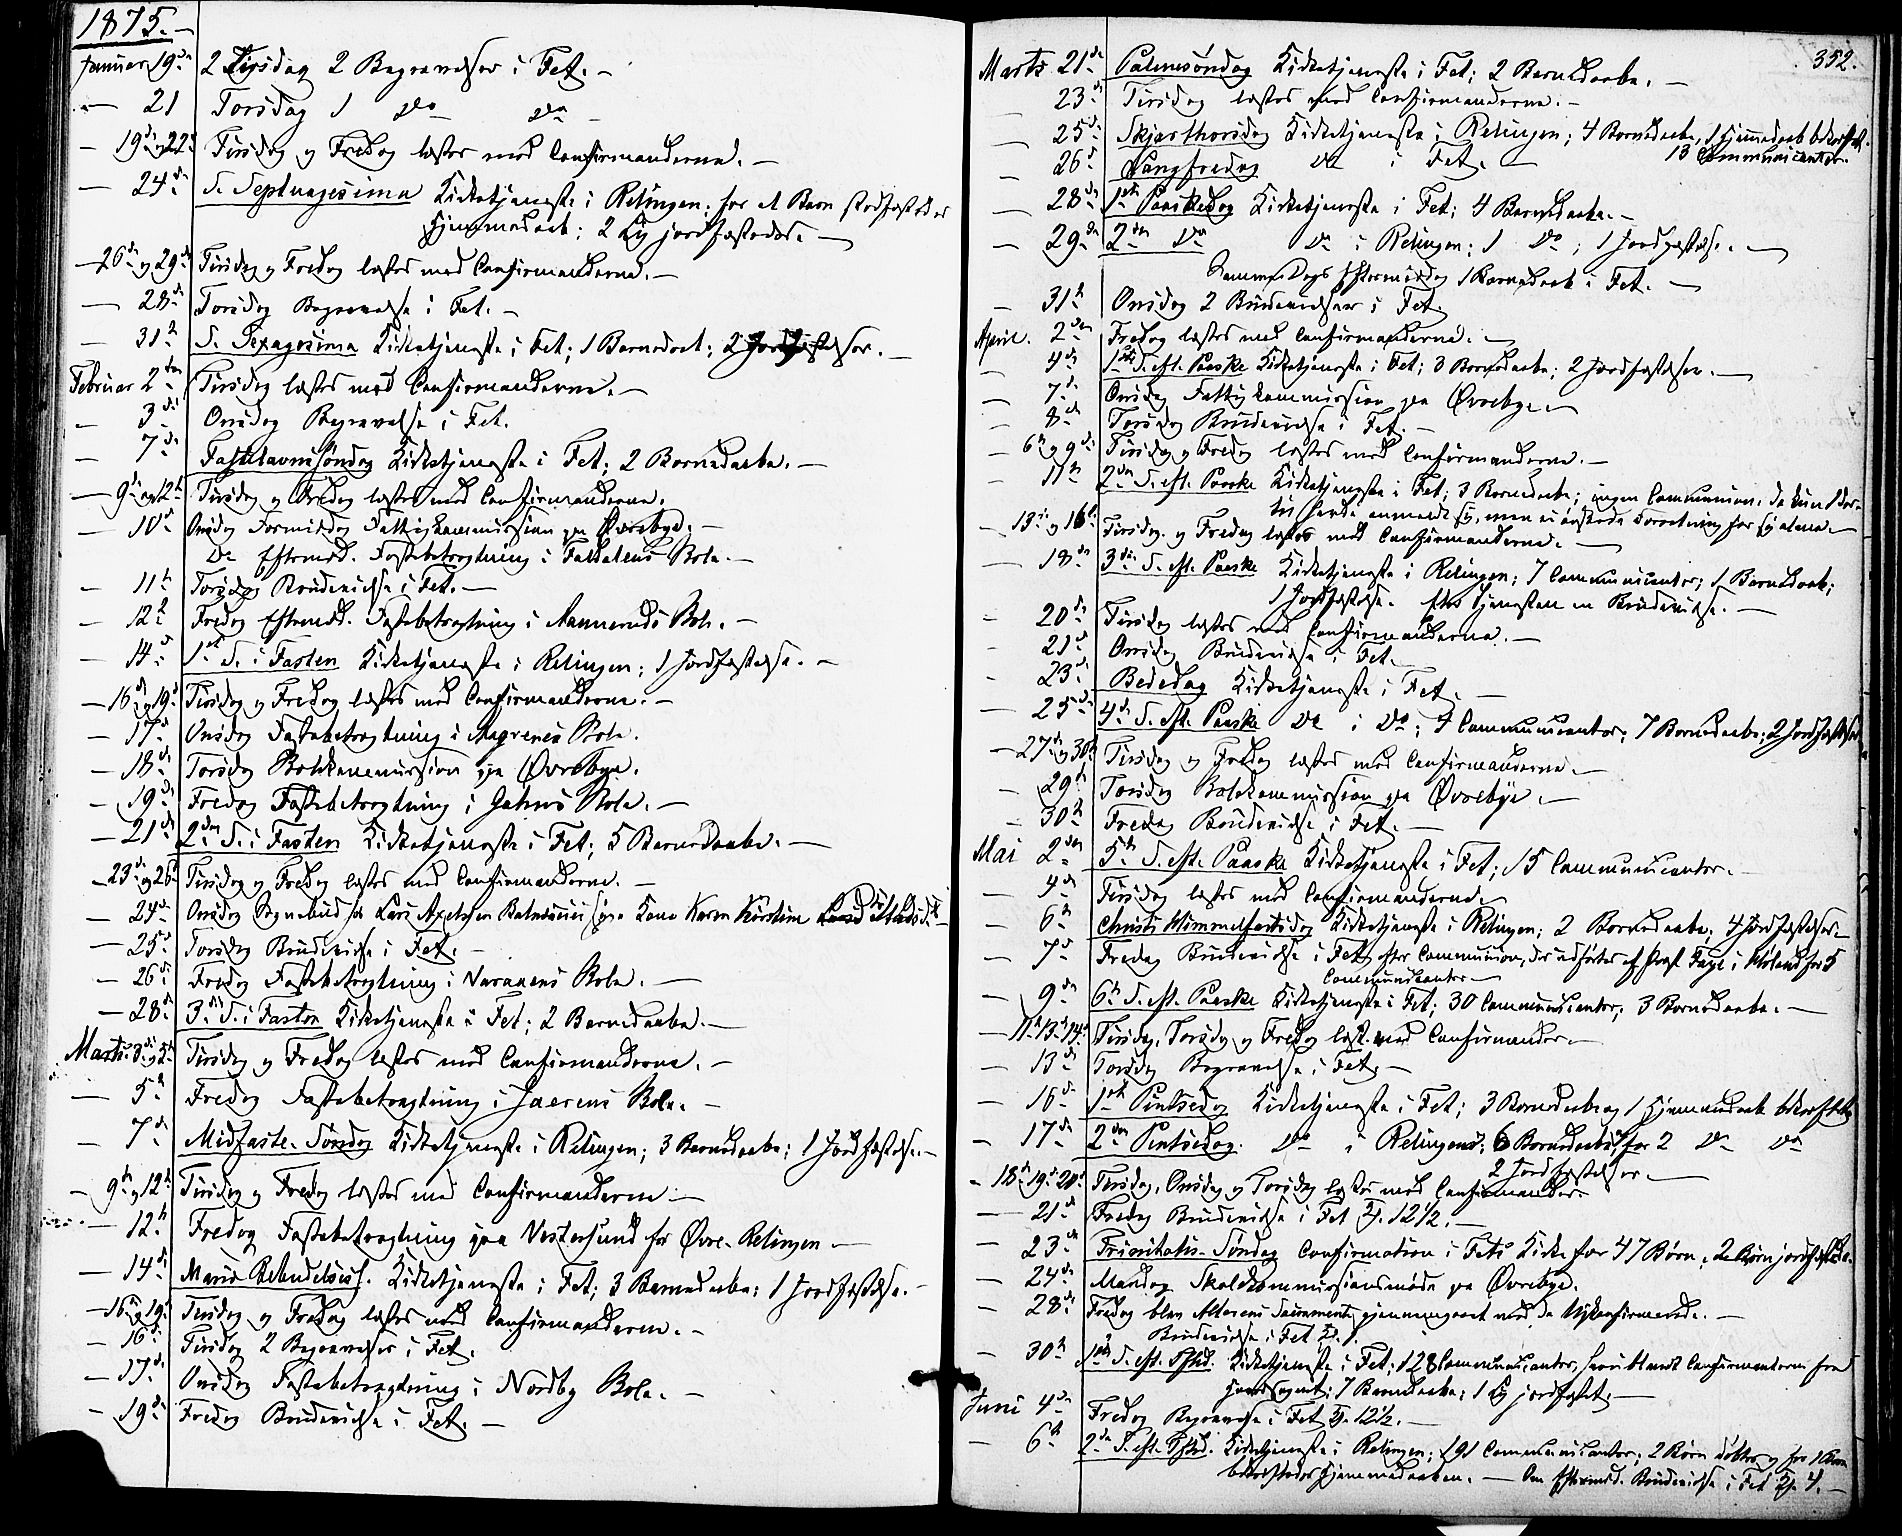 1875.-
Januar 19de 2 Tirsdag 2 Begravelser i Fet. -
- 21 Torsdag 1 Do Do -
- 19de og 22de Tirsdag og Fredag læstes med Confirmanderne. -
- 24de S. Septuagesima Kirketjeneste i Relingen; for et Barn stadfæstedes
Hjemmedaab; 2 Lig jordfæstedes. -
- 26de og 29de Tirsdag og Fredag læstes med Confirmanderne. -
- 28de Torsdag Begravelse i Fet. -
- 31te S. Sexagesima Kirketjeneste i Fet; 1 Barnedaab; 2 Jordfæstelser. -
Februar 2den Tirsdag læstes med Confirmanderne. -
- 3die Onsdag Begravelse i Fet.
- 7de Fastelavnssøndag Kirketjeneste i Fet; 2 Barnedaabe. -
- 9de og 12te Tirsdag og Fredag læstes med Confirmanderne.
- 10de Onsdag Formiddag Fattigkommission paa Øvrebye. -
Do Eftermd. Fastebetragtning i Faldalens Skole. -
- 11te Torsdag Brudevielse i Fet. -
- 12te Fredag Eftermd. Fastebetragtning i Nannerud Skole. -
- 14de 1ste S. i Fasten Kirketjeneste i Relingen; 1 Jordfæstelse. -
- 16de og 19de Tirsdag og Fredag læstes med Confirmanderne. -
- 17de Onsdag Fastebetragtning i Skole.
- 18de Torsdag Skolekommission paa Øvrebye.
- 19de Fredag Fastebetragtning i Skole. -
- 21de 2den S. i Fasten Kirketjeneste i Fet; 5 Barnedaabe. -
- 23de og 26de Tirsdag og Fredag læstes med Confirmanderne. -
- 24de Onsdag Sognebud for Lars Axelsen Kone Karen Kirstine
- 25de Torsdag Brudevielse i Fet. -
- 26de Fredag Fastebetragtning i Skole. -
- 28de 3die S. i Fasten Kirketjeneste i Fet; 2 Barnedaabe. -
Marts 2den og 5te Tirsdag og Fredag læstes med Confirmanderne. -
- 5te Fredag Fastebetragtning i Skole. -
- 7de Midfaste-Søndag Kirketjeneste i Relingen; 3 Barnedaabe; 1 Jordfæstelse. -
- 9de og 12te Tirsdag og Fredag læstes med Confirmanderne -
- 12te Fredag Fastebetragtning paa Vestersund for Øvre-Relingen -
- 14de Mariæ Bebudelsesf. Kirketjeneste i Fet; 3 Barnedaabe; 1 Jordfæstelse. -
- 16de og 19de Tirsdag og Fredag læstes med Confirmanderne. -
- 16de Tirsdag 2 Begravelser i Fet.
- 17de Onsdag Fastebetragtning i Nordby Skole. -
- 19de Fredag Brudevielse i Fet. -
352.
Marts 21de Palmesøndag Kirketjeneste i Fet; 2 Barnedaabe. -
- 23de Tirsdag læstes med Confirmanderne. -
- 25de Skjærthorsdag Kirketjeneste i Relingen; 4 Barnedaabe, 1 Hjemmedaab bekræftet.
13 Communicanter.
- 26de Langfredag Do i Fet. -
- 28de 1ste Paaskedag Kirketjeneste i Fet; 4 Barnedaabe. -
- 29de 2den Do Do i Relingen; 1 Do; 1 Jordfæstelse. -
Samme Dags Eftermiddag 1 Barnedaab i Fet. -
- 31te Onsdag 2 Brudevielser i Fet
April 2den Fredag læstes med Confirmanderne. -
- 4de 1ste S. eft. Paaske Kirketjeneste i Fet; 3 Barnedaabe; 2 Jordfæstelser. -
- 7de Onsdag Fattigkommission paa Øvrebye -
- 8de Torsdag Brudevielse i Fet. -
- 6te og 9de Tirsdag og Fredag læstes med Confirmanderne. -
- 11te 2den S. eft. Paaske Kirketjeneste i Fet; 3 Barnedaabe; ingen Communion, da kun 1
havde anmeldt sig, men ei ønskede Forretning for sig alene. -
- 13de og 16de Tirsdag og Fredag læstes med Confirmanderne. -
- 18de 3die S. eft. Paaske Kirketjeneste i Relingen; 7 Communicanter; 1 Barnedaab;
1 Jordfæstelse. Efter Tjenesten en Brudevielse. -
- 20de Tirsdag læstes med Confirmanderne. -
- 21de Onsdag Brudevielse i Fet. -
- 23de Bededag Kirketjeneste i Fet. -
- 25de 4de S. eft. Paaske Do i Do; 9 Communicanter; 7 Barnedaabe; 2 Jordfæstelser
- 27de og 30te Tirsdag og Fredag læstes med Confirmanderne. -
- 29de Torsdag Skolekommission paa Øvrebye. -
- 30te Fredag Brudevielse i Fet. -
Mai 2den 5te S. eft. Paaske Kirketjeneste i Fet; 15 Communicanter. -
- 4de Tirsdag læstes med Confirmanderne. -
- 6te Christi Himmelfartsdag Kirketjeneste i Relingen; 2 Barnedaabe; 4 Jordfæstelser. -
- 7de Fredag Brudevielse i Fet efter Communion, der udførtes af Præst Faye i Høland for 5
Communicanter -
- 9de 6te S. eft. Paaske Kirketjeneste i Fet; 30 Communicanter; 3 Barnedaabe. -
- 11te 13de 14de Tirsdag, Torsdag og Fredag læst med Confirmander. -
- 13de Torsdag Begravelse i Fet. -
- 16de 1ste Pintsedag Kirketjeneste i Fet; 3 Barnedaabe og 1 Hjemmedaab bekræftet
- 17de 2den Pintsedag. Do i Relingen; 6 Barnedaabe; for 2 Do Do
2 Jordfæstelser -
- 18de 19de 20de Tirsdag, Onsdag og Torsdag læstes med Confirmander.
- 21de Fredag Brudevielse i Fet Kl. 12½. -
- 23de Trinitatis-Søndag Confirmation i Fets Kirke for 47 Børn; 2 Børn jordfæstede.
- 24de Mandag Skolekommissionsmøde paa Øvrebye.
- 28de Fredag blev Alterens Sacramente gjennemgaaet med de Nykonfirmerede. -
Brudevielse i Fet Kl. 1.
- 30te 1ste S. eft. Tfhd. Kirketjeneste i Fet; 128 Communicanter, heriblandt Confirmanterne fra
Hovedsognet; 7 Barnedaabe; 1 Lig jordfæstet. -
Juni 4de Fredag Begravelse i Fet Kl. 12½. -
- 6te 2den S. eft. Tfhd. Kirketjeneste i Relingen; 191 Communicanter; 2 Børn døbtes og for 1 Barn
bekræftedes Hjemmedaaben. - Om Eftermd. Brudevielse i Fet Kl. 4. -